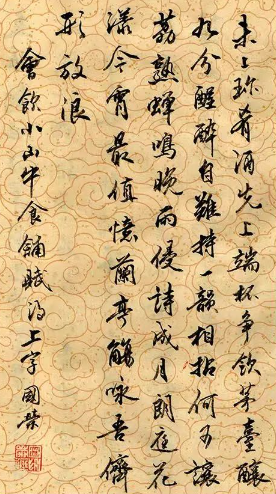 未上珍肴酒先上端杯争飲茅臺釀
九分醒醉自難持一韻相拈何可讓
荔熟蟬鳴晚雨侵詩成月朗庭花
漾今宵最值憶蘭亭觴咏吾儕
形放浪
會飲小山牛食鋪賦得上字國榮